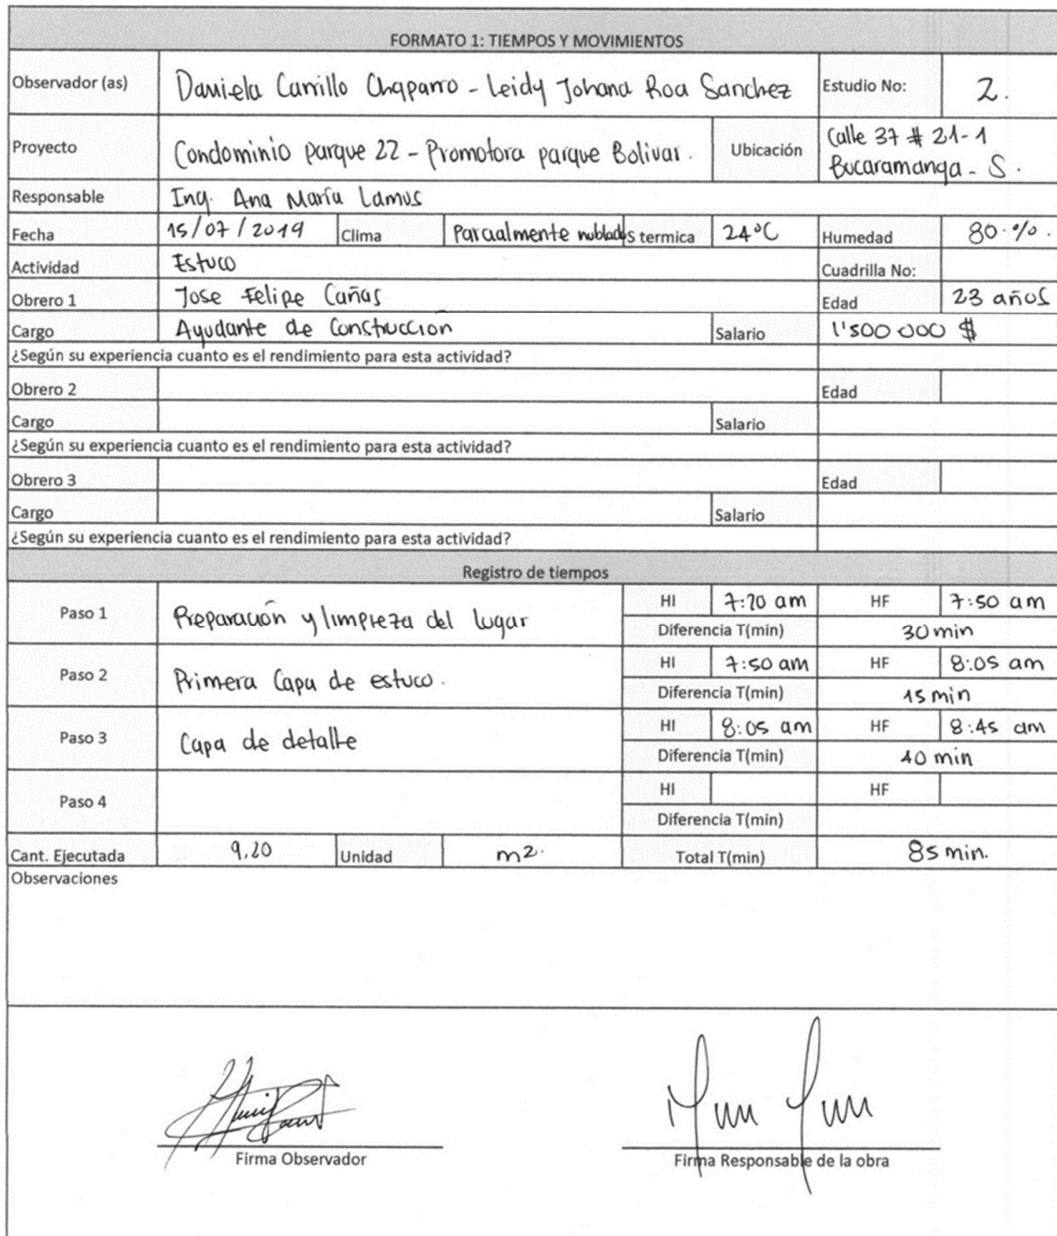 FORMATO 1: TIEMPOS Y MOVIMIENTOS
Observador (as) Daniela Carrillo Chaparro - Leidy Johana Roa Sanchez Estudio No: 2.
Proyecto Condominio parque 22 - Promotora parque Bolivar. Ubicación Calle 37 # 21-1
Bucaramanga - S.
Responsable Ing. Ana María Lamus
Fecha 15/07/2019 Clima Parcialmente nublado S termica 24°C Humedad 80 %.
Actividad Estuco Cuadrilla No:
Obrero 1 Jose Felipe Cañas Edad 23 años
Cargo Ayudante de Construccion Salario 1'500 000 $
¿Según su experiencia cuanto es el rendimiento para esta actividad?
Obrero 2 Edad
Cargo Salario
¿Según su experiencia cuanto es el rendimiento para esta actividad?
Obrero 3 Edad
Cargo Salario
¿Según su experiencia cuanto es el rendimiento para esta actividad?
Registro de tiempos
Paso 1 Preparación y limpieza del lugar HI 7:20 am HF 7:50 am
Diferencia T(min) 30 min
Paso 2 Primera Capa de estuco. HI 7:50 am HF 8:05 am
Diferencia T(min) 15 min
Paso 3 Capa de detalle HI 8:05 am HF 8:45 am
Diferencia T(min) 40 min
Paso 4 HI HF
Diferencia T(min)
Cant. Ejecutada 9,20 Unidad m2. Total T(min) 85 min.
Observaciones
Firma Observador Firma Responsable de la obra